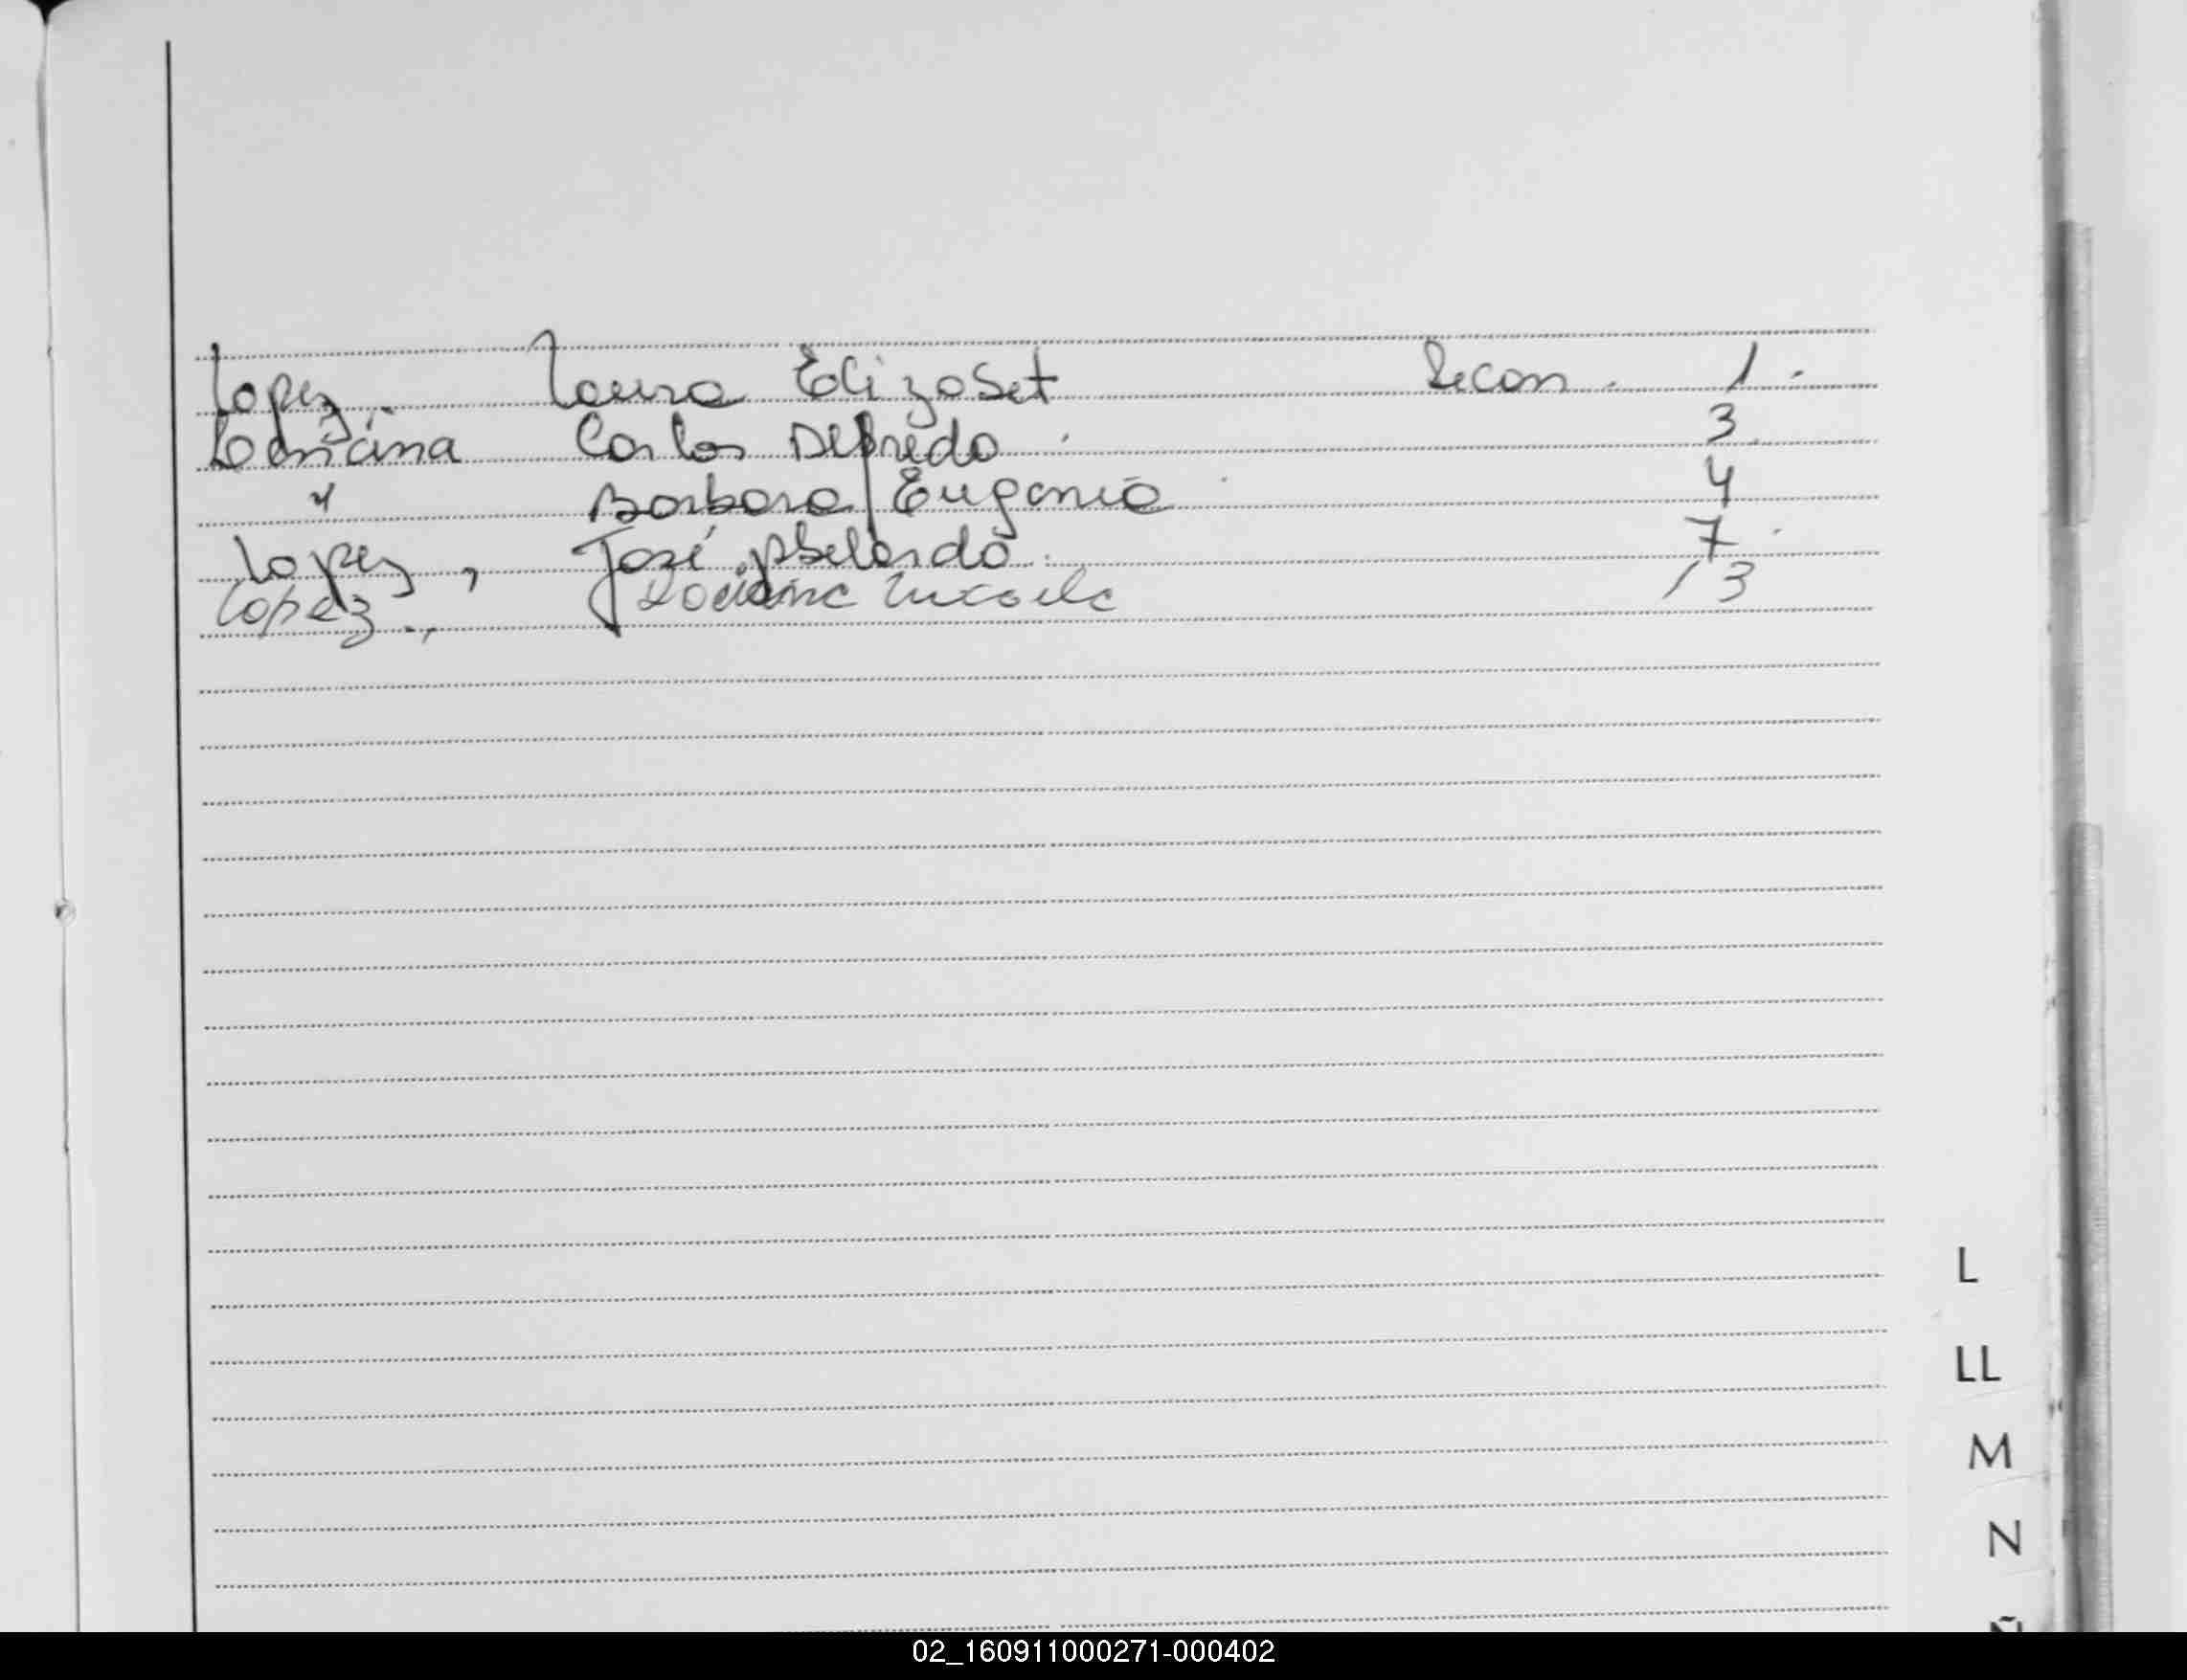 Lopez. Laura Elizabet Recon. 1.
Carlos Alfredo. 3.
" Barbara Eugenia. 4
Lopez, José Abelardo. 7.
Lopez., 13
L
LL
M
N
Ñ
02_160911000271-000402